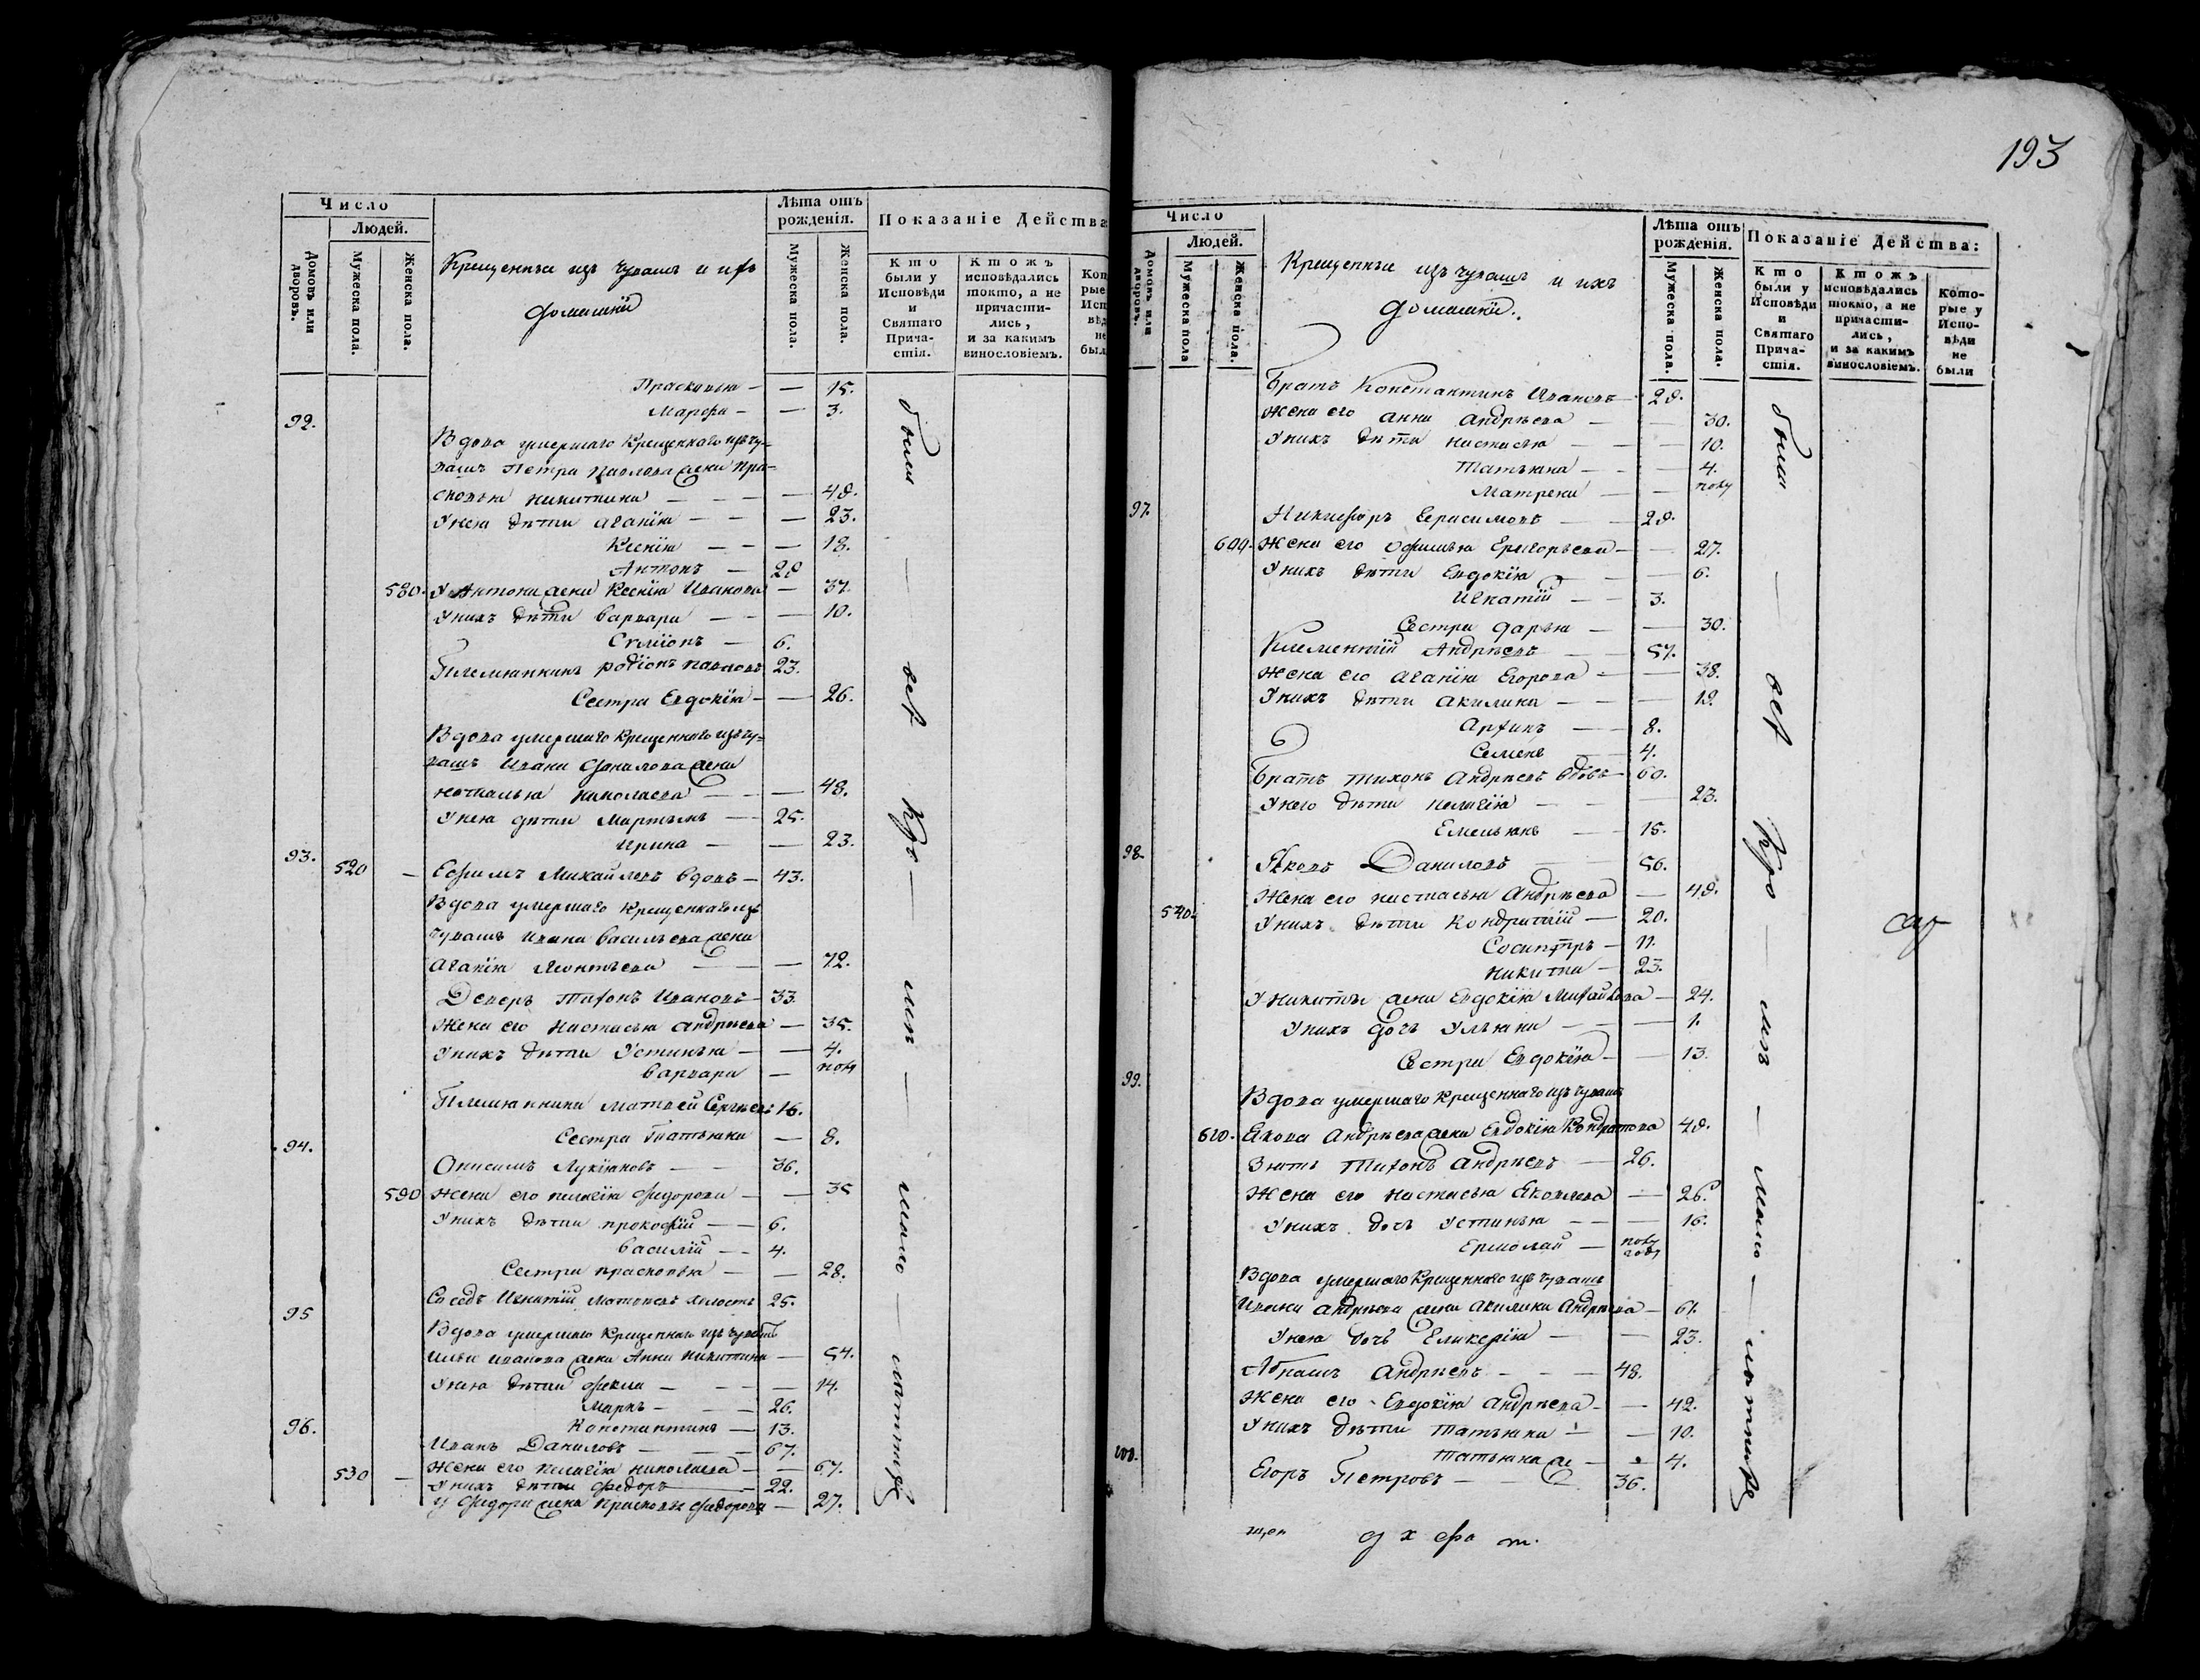 Число
Людей.
Домовъ или дворовъ.
Мужеска пола.
Женска пола.
Крещенныи изъ Чувашъ и ихъ
домашнiи
Лѣта отъ рожденiя.
Мужеска пола.
Женска пола.
Показанiе Действа
Кто были у Исповѣди и Святаго Причастiя.
Ктожъ исповѣдались токмо, а не причастились, и за какимъ винословiемъ.
Прасковья — — 15.
Марфа — — 3.
92.
Вдова умершаго крещеннаго изъ чу=
вашъ Петра Павлова жена Пра=
сковья Никитина — — — 48.
У нея дѣти Агапiя — — — 23.
Ксенiя — — — 18.
Антонъ — 28
580. У Антона жена Ксенiя Иванова — 37.
У нихъ дѣти Варвара — — — 10.
Семiонъ — 6.
Племянникъ Родiонъ Павловъ 23.
Сестра Евдокiя — — 26.
Вдова умершаго крещеннаго изъ чу=
вашъ Ивана Данилова жена
Наталья Николаева — — — 48.
У нея дѣти Мартынъ — 25.
Ирина — — 23.
93. 520 — Ефимъ Михайловъ вдовъ — 43.
Вдова умершаго крещеннаго изъ
чувашъ Ивана Васильева жена
Агапiя Леонтьева — — — 72.
Деверь Тихонъ Ивановъ — 33.
Жена его Настасья Андрѣева — 35.
У нихъ дѣти Устинья — — 4.
Варвара —
Племянники Матвей Сергѣевъ 16.
Сестра Татьяна — 8.
94.
Онисимъ Лукiяновъ — — 36.
590 Жена его Пелагiя Федорова — — 35
У нихъ дѣти Прокофiй — — 6.
Василiй — — 4.
Сестра Прасковья — — 28.
Соседъ Игнатiй Матвѣевъ холостъ 25.
95
Вдова умершаго крещеннаго изъ чувашъ
Ильи Иванова жена Анна Никитина — 54.
У нея дѣти Фекла — — — 14.
Маркъ — — — 26.
Константинъ — 13.
96.
Иванъ Даниловъ — — — 67.
Жена его Пелагiя Николаева — — 67.
530 — У нихъ дѣти Федоръ — 22.
У Федора жена Прасковья Федорова — 27.
были — всѣ
193
Число
Людей.
Домовъ или дворовъ.
Мужеска пола
Женска пола.
Крещенныи изъ чувашъ и ихъ
домашнiи.
Лѣта отъ рожденiя.
Мужеска пола.
Женска пола.
Показанiе Действа:
Кто были у Исповѣди и Святаго Причастiя.
Ктожъ исповѣдались токмо, а не причастились, и за какимъ винословiемъ.
Которые у Исповѣди не были
Братъ Константинъ Ивановъ 28.
Жена его Анна Андрѣева — — 30.
У нихъ дѣти Настасья — — — 10.
Татьяна — — — 4.
Матрена — —
97.
Никифоръ Герасимовъ — — 28.
600. Жена его Офимья Григорьева — — 27.
У нихъ дѣти Евдокiя — — 6.
Игнатiй — — 3.
Сестра Дарья — — 30.
Климентiй Андрѣевъ — — 57.
Жена его Агапiя Егорова — — 38.
У нихъ дѣти Акилина — — — 12.
Архипъ — — 8.
Семенъ — 4.
Братъ Тихонъ Андрѣевъ вдовъ 60.
У него дѣти Пелагiя — — — 23.
Емельянъ — 15.
98.
Яковъ Даниловъ — 56.
Жена его Настасья Андрѣева — 48.
540. У нихъ дѣти Кондратiй — 20.
Сосипатръ — 11.
Никита — 23.
У Никиты жена Евдокiя Михайлова — 24.
У нихъ дочь Ульяна — — 1.
Сестра Евдокiя — — 13.
99.
Вдова умершаго крещеннаго изъ чувашъ
610. Якова Андрѣева жена Евдокiя Кондратова 48.
Зять Тихонъ Андрѣевъ — 26.
Жена его Настасья Яковлева — 26.
У нихъ дочь Устинья — — — 16.
Ермолай — полу году
Вдова умершаго крещеннаго изъ чувашъ
Ивана Андрѣева жена Акилина Андрѣева — 61.
У нея дочь Гликерiя — — 23.
Абрамъ Андрѣевъ — — — 48.
Жена его Евдокiя Андрѣева — — 42.
У нихъ дѣти Татьяна — — 10.
Татьяна же — 4.
100.
Егоръ Петровъ — — 36.
были — всѣ